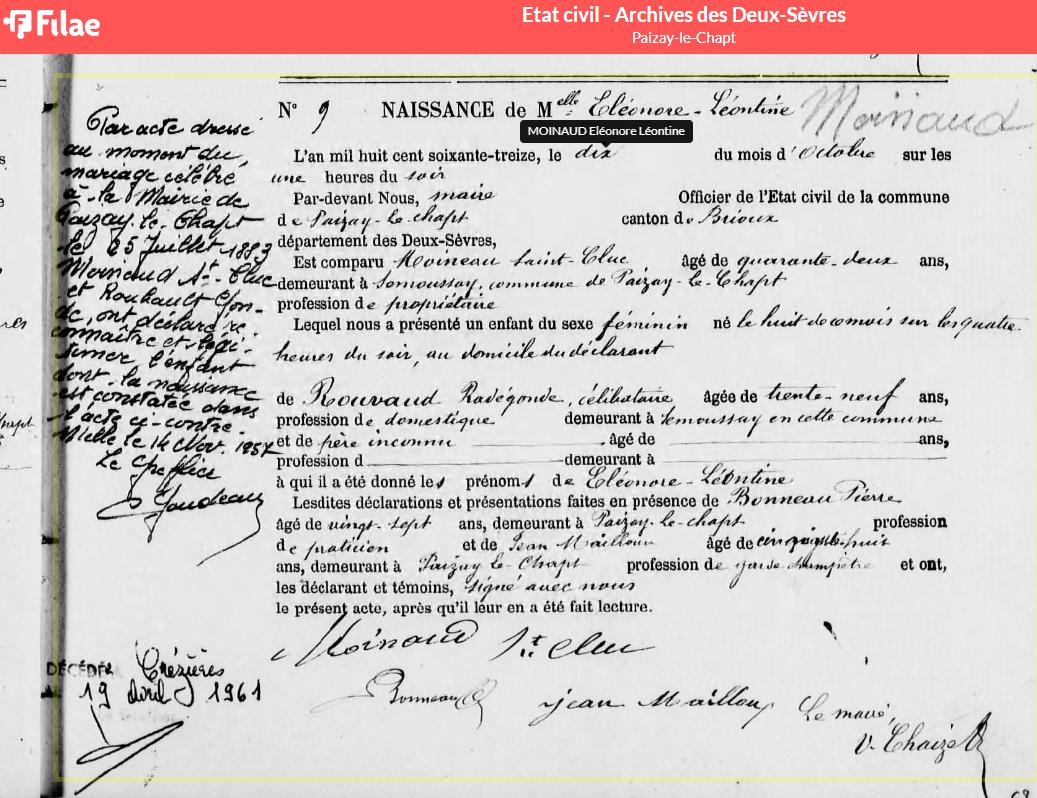 Filae
Etat civil - Archives des Deux-Sèvres
Paizay-le-Chapt
Par acte dressé
au moment du
mariage célébré
à la Mairie de
Paizay-le-Chapt
le 25 Juillet 1883
Moinaud St Cluc
et Rouhault
ont déclaré re-
connaître et légi-
timer l'enfant
dont la naissance
est constatée dans
l'acte ci-contre.
Melle le 14 Nov.
Le Greffier
N° 9 NAISSANCE de Melle Eléonore-Léontine
Moinaud
MOINAUD Eléonore Léontine
L'an mil huit cent soixante-treize, le dix du mois d'Octobre sur les
une heures du soir
Par-devant Nous, maire Officier de l'Etat civil de la commune
de Paizay-le-chapt canton de Brioux
département des Deux-Sèvres,
Est comparu Moineau Saint-Cluc âgé de quarante-deux ans,
demeurant à Semoussay, commune de Paizay-le-Chapt
profession de propriétaire
Lequel nous a présenté un enfant du sexe féminin né le huit de ce mois sur les quatre
heures du soir, au domicile du déclarant
de Rouvaud Radégonde, célibataire âgée de trente-neuf ans,
profession de domestique demeurant à Semoussay en cette commune
et de père inconnu âgé de ans,
profession d demeurant à
à qui il a été donné les prénoms de Eléonore-Léontine
Lesdites déclarations et présentations faites en présence de Bonneau Pierre
âgé de vingt-sept ans, demeurant à Paizay-le-chapt profession
de praticien et de Jean Mailloux âgé de cinquante-huit
ans, demeurant à Paizay-le-Chapt profession de garde champêtre et ont,
les déclarant et témoins, signé avec nous
le présent acte, après qu'il leur en a été fait lecture.
Moinaud St Cluc
Bonneau jean Mailloux Le maire,
V. Chaize
DÉCÉDÉE Crézières
19 avril 1961